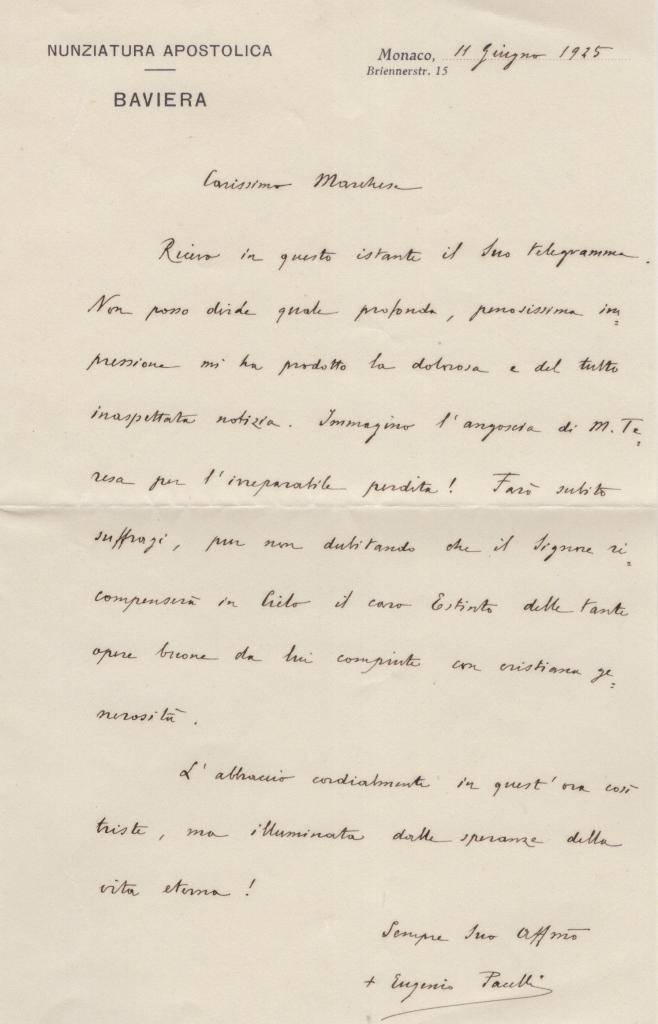 NUNZIATURA APOSTOLICA
BAVIERA
Monaco, 11 Giugno 1925
Briennerstr. 15
Carissimo Marchese
Ricevo in questo istante il Suo telegramma.
Non posso dirLe quale profonda, penosissima im=
pressione mi ha prodotto la dolorosa e del tutto
inaspettata notizia. Immagino l'angoscia di M. Te=
resa per l'irreparabile perdita! Farò subito
suffragi, pur non dubitando che il Signore ri=
compenserà in Cielo il caro Estinto delle tante
opere buone da lui compiute con cristiana ge=
nerosità.
L'abbraccio cordialmente in quest'ora così
triste, ma illuminata dalle speranze della
vita eterna!
Sempre Suo Affmo
+ Eugenio Pacelli